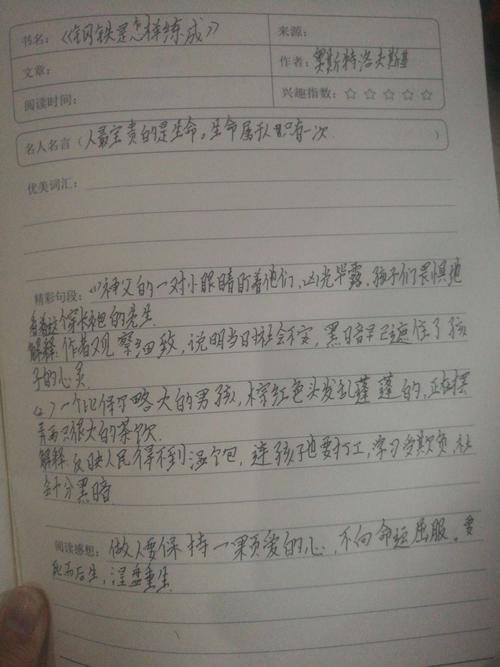 书名:《钢铁是怎样练成》
来源:
文章:
作者:奥斯特洛夫斯基
阅读时间:
兴趣指数:☆ ☆ ☆ ☆ ☆
名人名言(人最宝贵的是生命,生命属于人只有一次 )
优美词汇:
精彩句段:(1)神父的一对小眼睛盯着他们,凶光毕露,孩子们畏惧地
看着这个穿长袍的先生
解释:作者观察细致,说明当时社会不安,黑暗早已遮住了孩
子的心灵
(2)一个比保尔略大的男孩,棕红色头发乱蓬蓬的,正在摆
弄两只很大的茶炊
解释:反映人民得不到温饱,连孩子也要打工,
会十分黑暗
阅读感想:做人要保持一颗爱的心,不向命运屈服,要
死而后生,涅盘重生